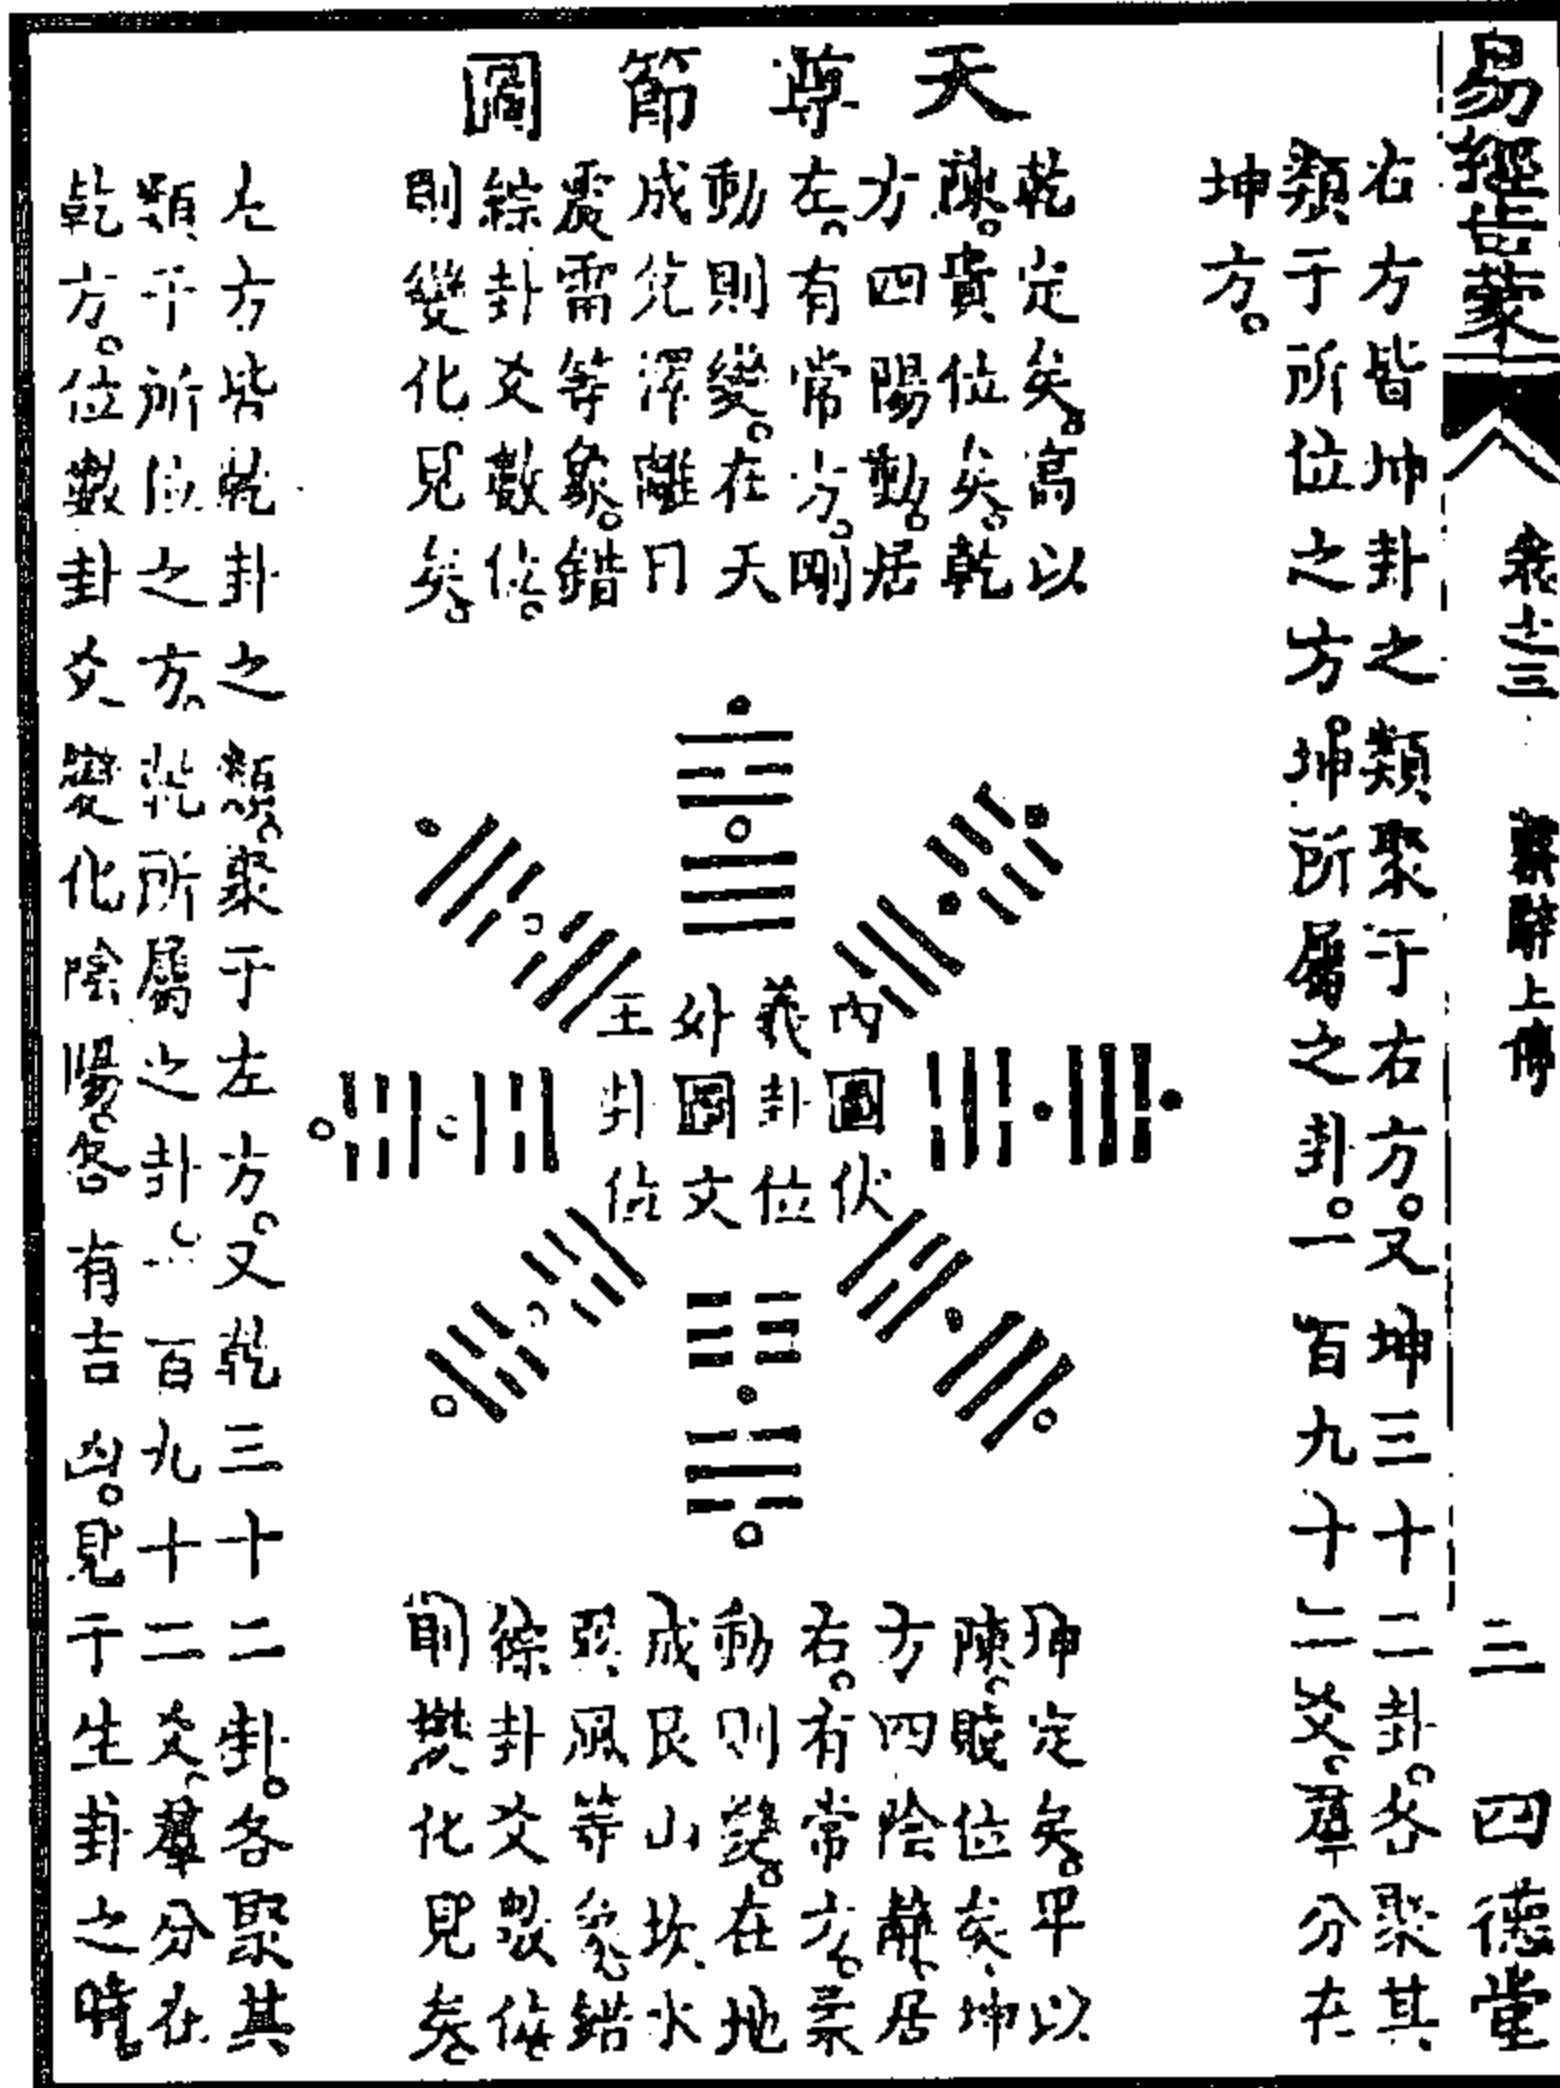 天尊節圖
右方皆坤卦之類聚于右方。又坤三十二卦。各聚其
類于所位之方。坤所屬之卦。一百九十二爻。羣分在
坤方。
乾定矣。高以
陳。貴位矣。乾
方四陽動。居
左。有常方。剛
動則變。在天
成兌澤離日
震雷等象。錯
綜卦爻數位。
則變化見矣。
內圖伏
羲卦位
外圖文
王卦位
坤定矣。卑以
陳。賤位矣。坤
方四陰靜。居
右。有常方。柔
動則變。在地
成艮山坎水
巽風等象。錯
綜卦爻數位。
則變化見矣。
左方皆乾卦之類。聚于左方。又乾三十二卦。各聚其
類于所位之方。乾所屬之卦。一百九十二爻。羣分在
乾方。位數卦爻變化陰陽。各有吉凶。見于生卦之時。
易經告蒙 卷之三 繫辭上傳 三 四德堂